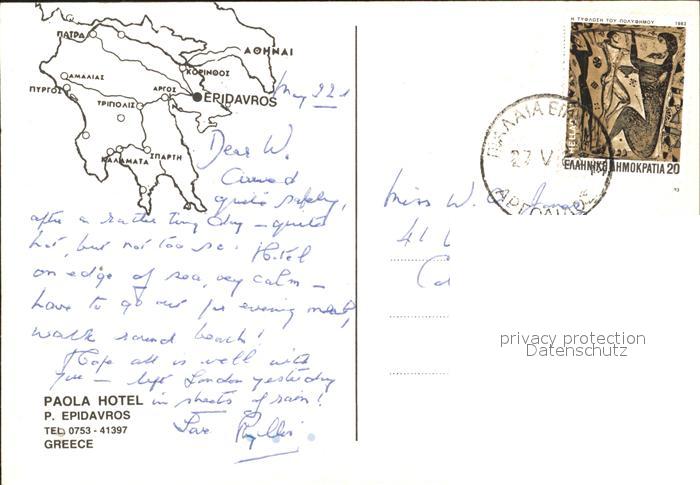 ΠΑΤΡΑ
ΑΘΗΝΑΙ
ΚΟΡΙΝΘΟΣ
ΑΜΑΛΙΑΣ
ΠΥΡΓΟΣ
ΑΡΓΟΣ
EPIDAVROS
ΤΡΙΠΟΛΙΣ
ΚΑΛΑΜΑΤΑ
ΣΠΑΡΤΗ
May 22
Dear W.
Arrived
quite safely,
after a rather tiring day - quite
hot, but not too so! Hotel
on edge of sea, very calm -
have to go out for evening meal,
walk round beach!
Hope all is well with
you - left London yesterday
in sheets of rain!
Love Phyllis
PAOLA HOTEL
P. EPIDAVROS
TEL. 0753 - 41397
GREECE
Η ΤΥΦΛΩΣΗ ΤΟΥ ΠΟΛΥΦΗΜΟΥ 1983
HELLAS
ΕΛΛΗΝΙΚΗ ΔΗΜΟΚΡΑΤΙΑ 20
ΠΑΛΑΙΑ ΕΠΙ
27 V
Miss W.
41
privacy protection
Datenschutz